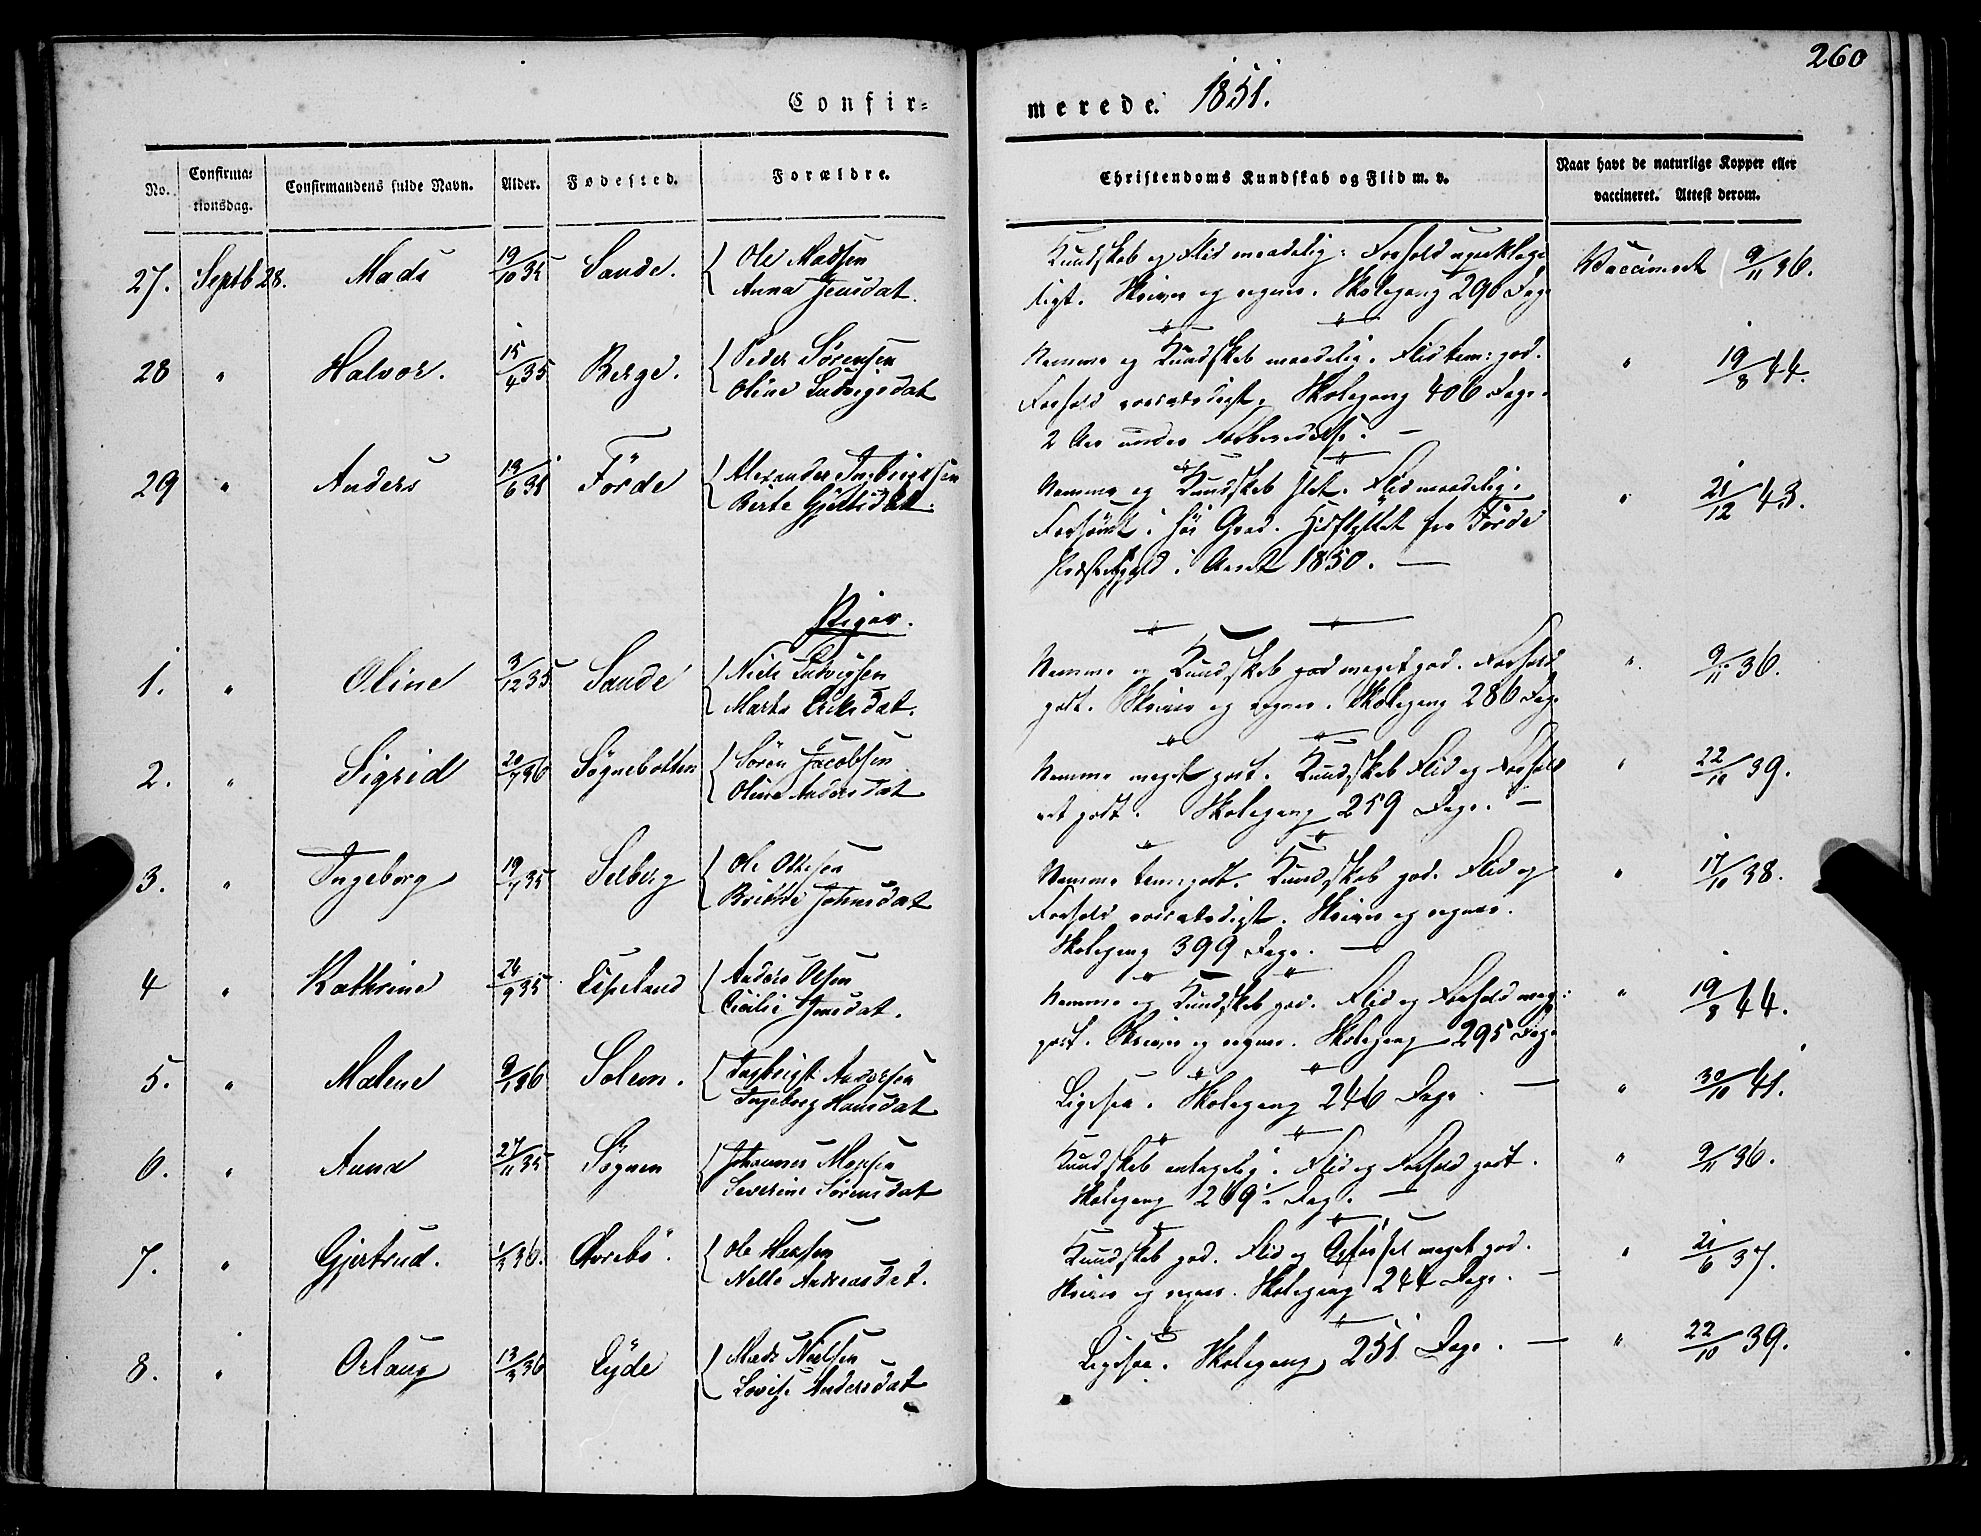 260
Confir=
merede. 1851.
No.
Confirma=
tionsdag.
Confirmandens fulde Navn.
Alder.
Fødested.
Forældre.
Christendoms Kundskab og Flid m. v.
Naar havt de naturlige Kopper eller
vaccineret. Attest derom.
27. Septb 28. Mads 19/10 35 Sande. Ole Madsen
Anna Jensdat.
Kundskab og Flid maadelig. Forhold upaaklage
ligt. Skriver og regner. Skolegang 290 Dage
Vaccineret 9/11 36.
28 " Halvor. 15/4 35 Berge. Peder Sørensen
Oline Ludvigsdat
Nemme og Kundskab maadelig. Flid tem: god.
Forhold roesværdigt. Skolegang 406 Dage.
2 Aar under Forberedelse. —
" 19/8 44.
29 " Anders Förde Alexander Ingebrigtsen
Berte
Nemme og Kundskab slet. Flid maadelig.
Forsömt i höi Grad. Hidflyttet fra Förde
Præstegjeld i Aaret 1850. —
" 21/12 43.
Piger.
1. " Oline 3/12 35 Sande Niels Ludvigsen
Marta Eriksdat.
Nemme og Kundskab god meget god. Forhold
godt. Skriver og regner. Skolegang 286 Dage
" 9/11 36.
2. " Sigrid Sögnebotten Sören Jacobsen
Oline Andersdat
Nemme meget godt. Kundskab Flid og Forhold
godt. Skolegang 259 Dage. —
" 22/10 39.
3. " Ingeborg 19/7 35 Selberg Ole Olsen
Brithe Johnsdat
Nemme temgodt. Kundskab god. Flid og
Forhold roesværdigt. Skriver og regner.
Skolegang 399 Dage. —
" 17/10 38.
4 " Kathrine 24/9 35 Espeland Anders Olsen
Cicilie Jensdat.
Nemme og Kundskab god. Flid og Forhold meg:
godt. Skriver og regner. Skolegang 295 Dage
" 19/8 44.
5. " Malene Solem. Ingbrigt Andersen
Ingeborg Hansdat
Ligesaa. Skolegang 246 Dage —
" 30/10 41.
6. " Anna 27/11 35 Sögnen Johannes
Severine Sörensdat
Kundskab antagelig. Flid og Forhold godt.
Skolegang 269 Dag. —
" 9/11 36.
7. " Gjertrud. Aarebö. Ole Hansen
Nelle Andreasdat.
Kundskab god. Flid og meget god.
Skriver og regner. Skolegang 244 Dage. —
" 21/6 37.
8. " Orlaug 13/3 36 Eyde Mads Nielsen
Lovise Andersdat
Ligesaa. Skolegang 251 Dage. —
" 22/10 39.